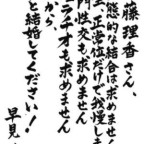 藤理香さん、
態的な結合は求めません
正常位だけで我慢しま
門性交も求めません
ラチオも求めません
から、
と結婚してください!
早見